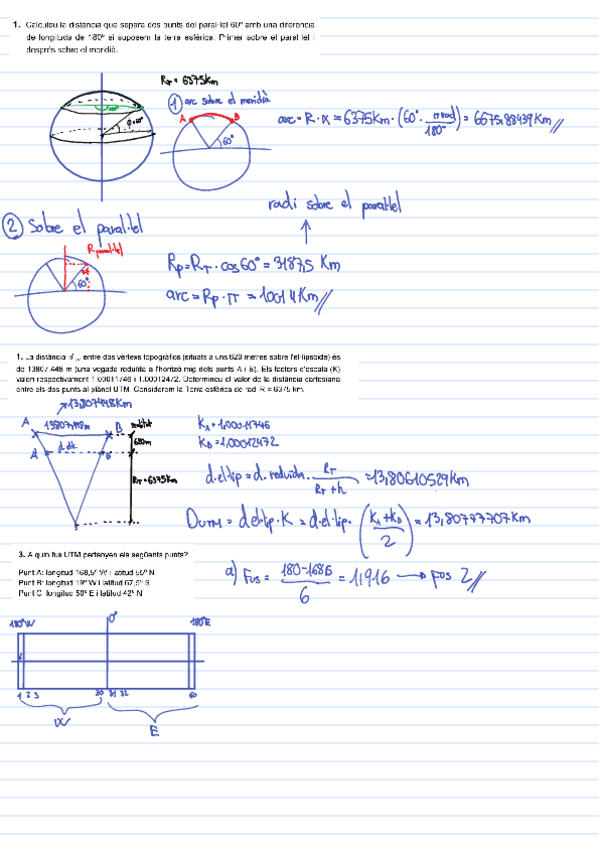 1. Calculeu la distància que separa dos punts del paral·lel 60º amb una diferència
de longituds de 180º si suposem la terra esfèrica. Primer sobre el paral·lel i
després sobre el meridià.
R_T = 6375km
① arc sobre el meridià
A B
60°
φ=60°
arc = R·α = 6375Km · (60° · π rad / 180°) = 6675,88439 Km //
② Sobre el paral·lel
R paral·lel
60°
radi sobre el paral·lel
R_P = R_T · cos60° = 3187,5 Km
arc = R_P · π = 10014 Km //
1. La distància entre dos vèrtexs topogràfics (situats a uns 620 metres sobre l'el·lipsoide) és
de 13807.448 m (una vegada reduïda a l'horitzó mig dels punts A i B). Els factors d'escala (K)
valen respectivament 1.00011746 i 1.00012472. Determineu el valor de la distància cartesiana
entre els dos punts al plànol UTM. Considerem la Terra esfèrica de radi R = 6375 km.
13,807448 Km
A B
A' B'
R_T = 6375Km
K_A = 1,00011746
K_B = 1,00012472
d·el·lip = d. reduïda · R_T / (R_T + h) = 13,80610529 Km
D_UTM = d·el·lip · K = d·el·lip · ((K_A + K_B) / 2) = 13,80777707 Km
3. A quin fus UTM pertanyen els següents punts?
Punt A: longitud 168,5º W i latitud 55º N
Punt B: longitud 19º W i latitud 67,5º S
Punt C: longitud 50º E i latitud 42º N
a) Fus = (180 - 168,5) / 6 = 1,916 → Fus 2 //
180°W 0° 180°E
1 2 3 30 31 32 60
W E